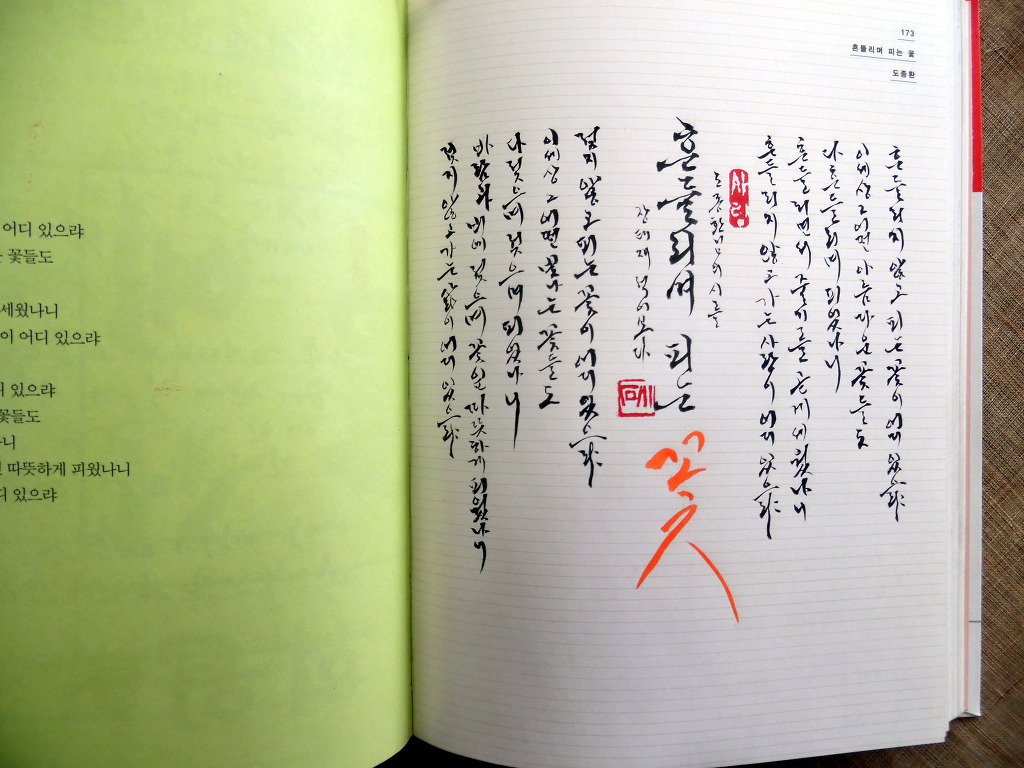 어디 있으랴
꽃들도
세웠나니
이 어디 있으랴
있으랴
꽃들도
니
따뜻하게 피웠나니
있으랴
173
흔들리며 피는 꽃
도종환
흔들리지 않고 피는 꽃이 어디 있으랴
이 세상 그 어떤 아름다운 꽃들도
다 흔들리며 피었나니
흔들리면서 줄기를 곧게 세웠나니
흔들리지 않고 가는 사랑이 어디 있으랴
사랑
도종환님의 시를
흔들리며 피는 꽃
젖지 않고 피는 꽃이 어디 있으랴
이 세상 그 어떤 빛나는 꽃들도
다 젖으며 젖으며 피었나니
바람과 비에 젖으며 꽃잎 따뜻하게 피웠나니
젖지 않고 가는 삶이 어디 있으랴